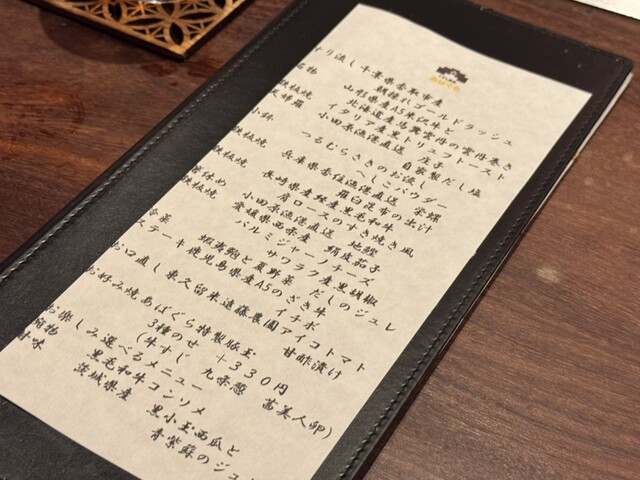 あばぐら
すり流し 千葉県香取市産
朝採れゴールドラッシュ
名物 山形県産A5米沢牛と
北海道産馬糞雲丹の雲丹巻き
鉄板焼 イタリア産黒トリュフトースト
天婦羅 小田原漁港直送 庄子
自家製だし塩
小鉢 つるむらさきのお浸し
へしこパウダー
鉄板焼 兵庫県香住漁港直送 栄螺
羅臼昆布の出汁
鉄板焼 長崎県産壱岐産黒毛和牛
肩ロースのすき焼き風
箸休め 小田原漁港直送 地鰹
鉄板焼 愛媛県西条産 絹皮茄子
パルミジャーノチーズ
サワラク産黒胡椒
冷菜 蝦夷鮑と夏野菜 だしのジュレ
ステーキ 鹿児島県産A5のざき牛
イチボ
お口直し 東久留米遠藤農園アイコトマト
甘酢漬け
お好み焼 あばぐら特製豚玉
3種のせ +330円
(牛すじ 九条葱 富美人卵)
お楽しみ 選べるメニュー
椀物 黒毛和牛コンソメ
甘味 茨城県産
黒小玉西瓜と
青紫蘇のジュ